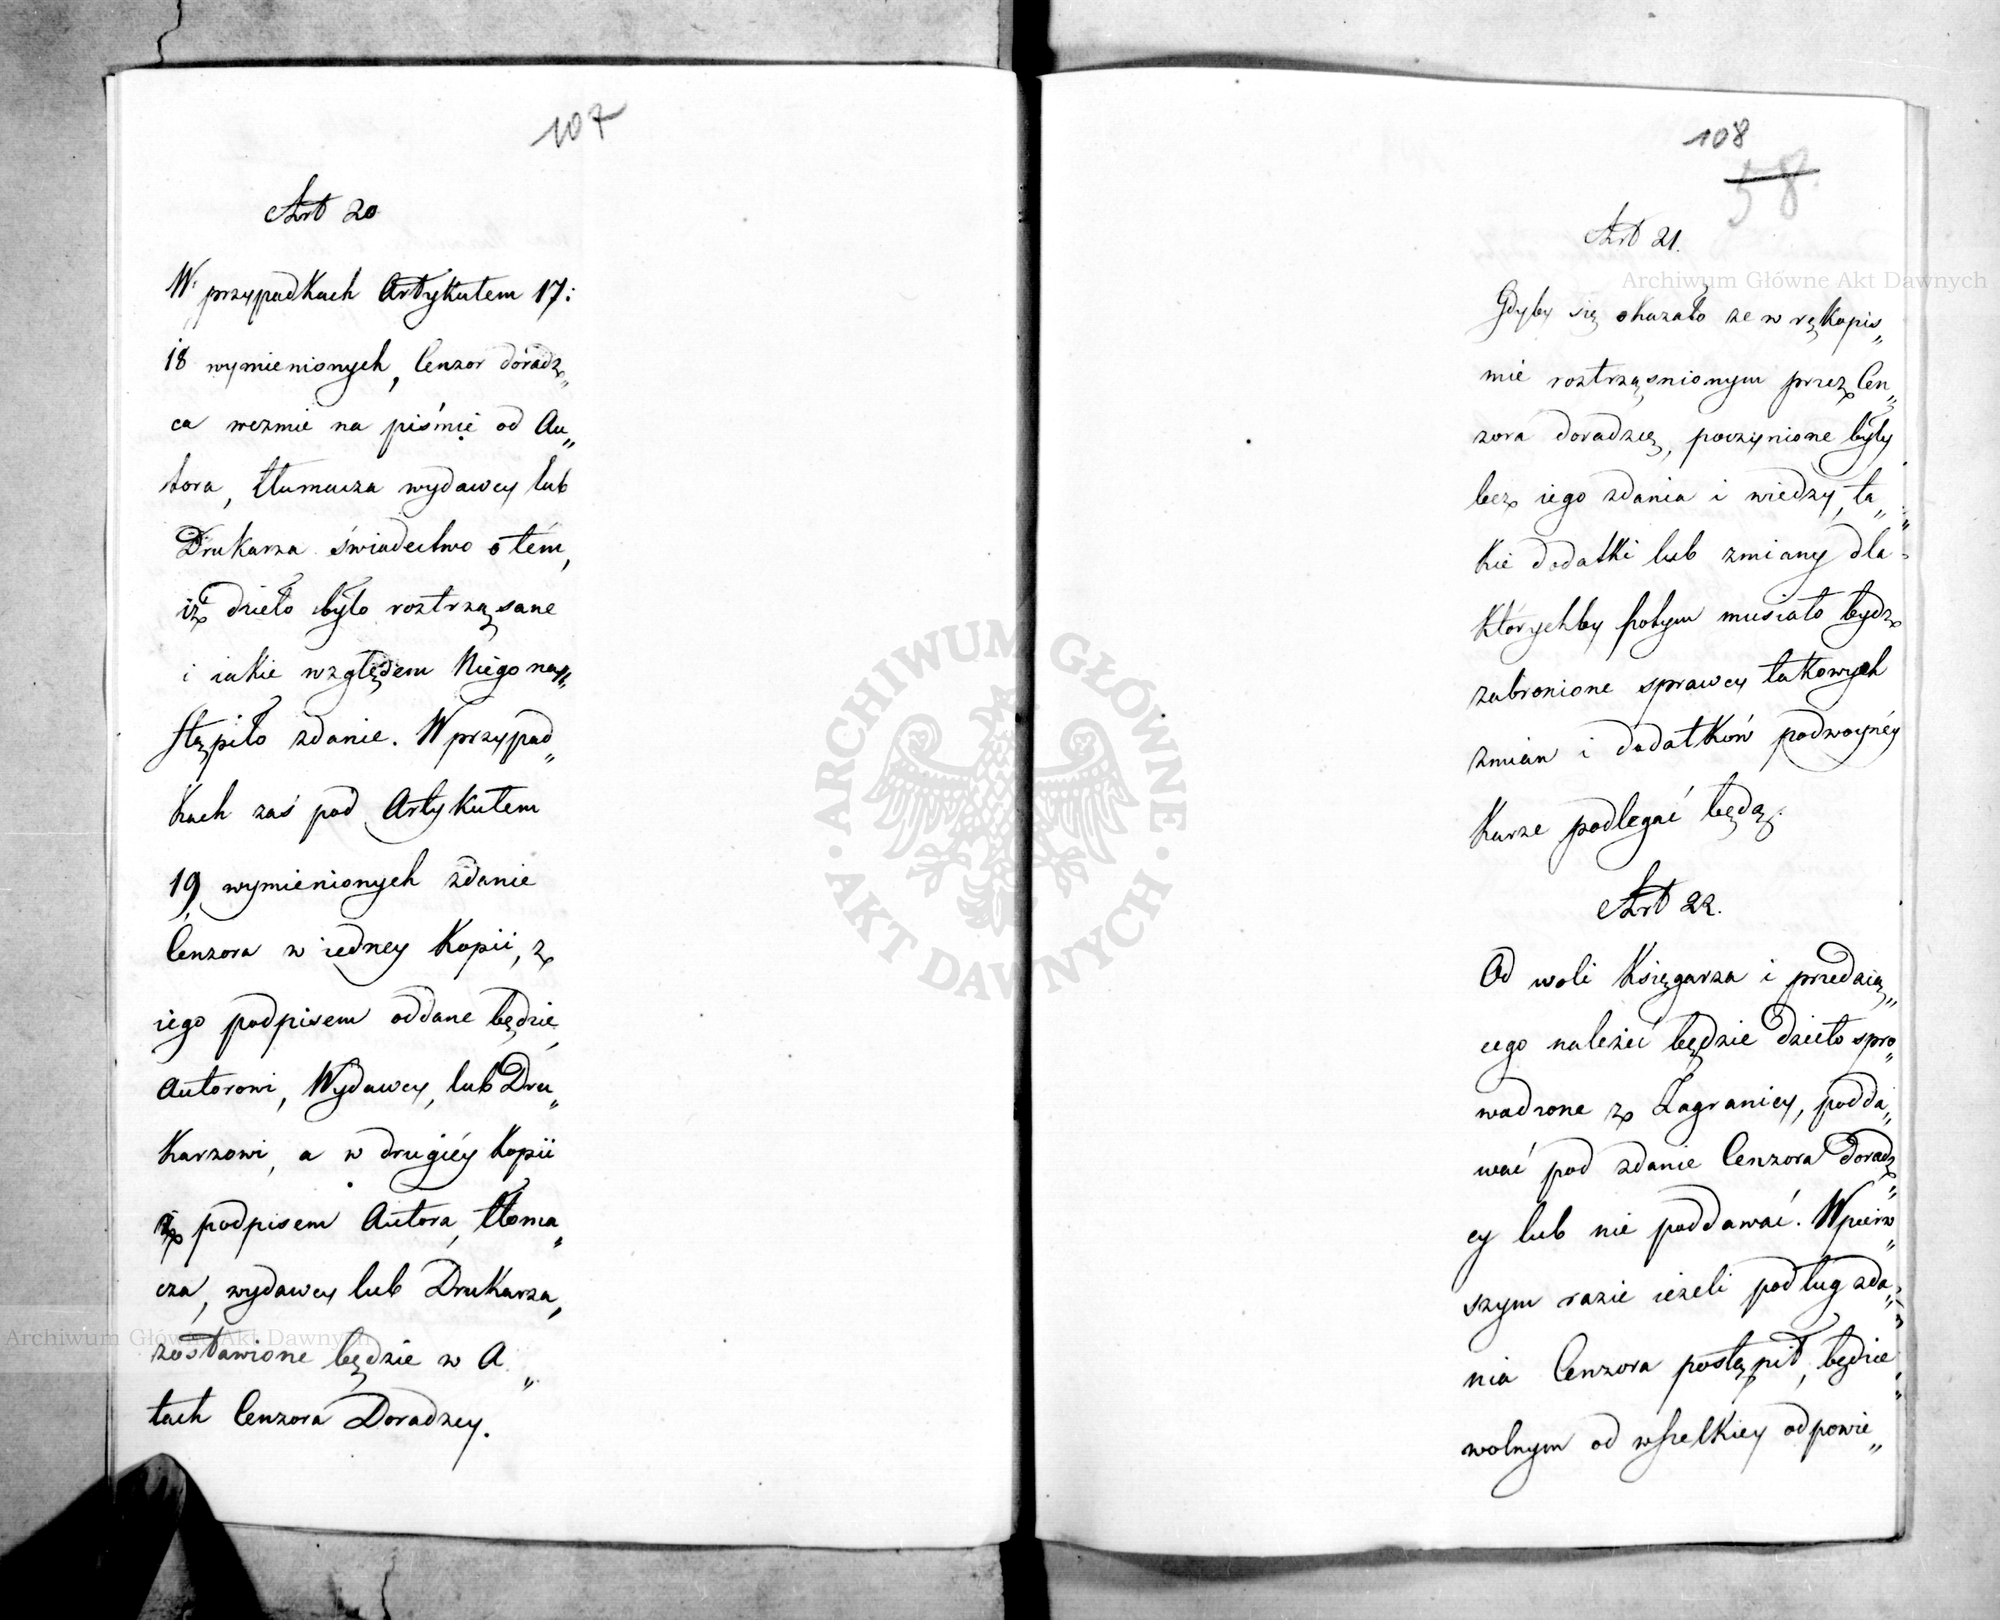 107
Art 20
W przypadkach Artykułem 17:
18 wymienionych, Cenzor doradz„
ca wezmie na piśmie od Au„
tora, tłumacza wydawcy lub
Drukarza świadectwo o tém,
iż dzieło było roztrząsane
i iakie względem Niego na„
stąpiło zdanie. W przypad„
kach zaś pod Artykułem
19 wymienionych zdanie
Cenzora w iedney Kopii, z
iego podpisem oddane będzie
Autorowi, Wydawcy, lub Dru„
karzowi, a w drugiéy Kopii
z podpisem Autora, tłoma„
cza, wydawcy lub Drukarza,
zostawione będzie w A„
ktach Cenzora Doradzcy.
108
58
Art 21.
Gdyby się okazało ze w rękopis„
mie roztrząsnionym przez Cen„
zora doradzcę, poczynione były
bez iego zdania i wiedzy, ta„
kie dodatki lub zmiany dla
którychby potym musiało bydz
zabronione sprawcy takowych
zmian i dodatków podwoynéy
karze podlegać będą.
Art 22.
Od woli Księgarza i przedaią„
cego należeć będzie dzieło spro„
wadzone z Zagranicy, podda„
wać pod zdanie Cenzora doradz„
cy lub nie poddawać. W pierw„
szym razie ieżeli podług zda„
nia Cenzora postąpił, będzie
wolnym od wszelkiey odpowie„
Archiwum Główne Akt Dawnych
Archiwum Główne Akt Dawnych
ARCHIWUM GŁÓWNE
· AKT DAWNYCH ·